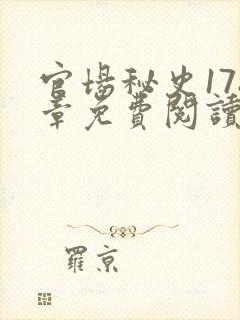 官場秘史17
章免費閱讀
羅京